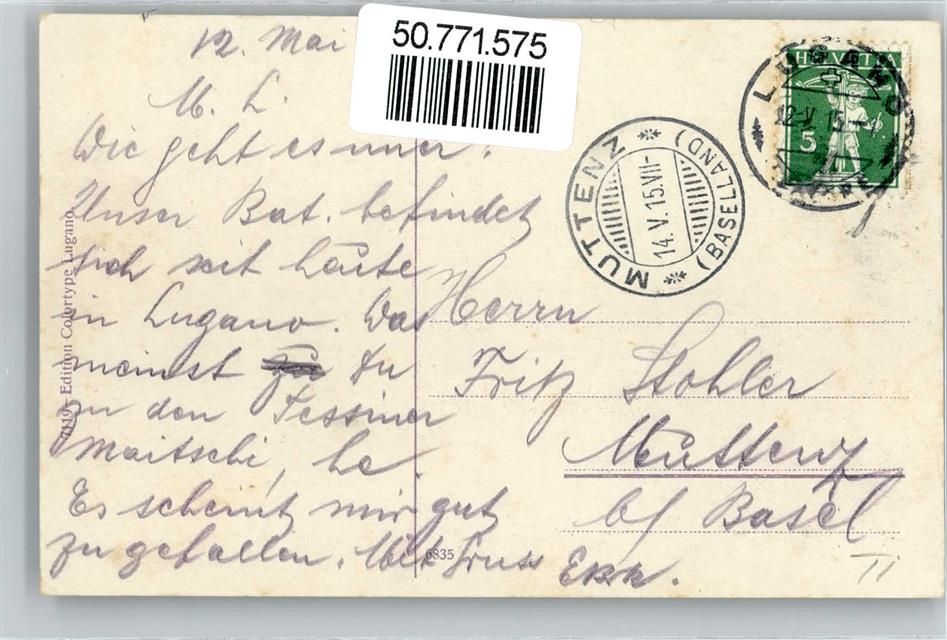 50.771.575
12. Mai
M. L.
Wie geht es immer?
Unser Bat. befindet
sich seit heute
in Lugano. Was
meinst Du
zu den Tessiner
Maitschi, he.
Es scheint mir gut
zu gefallen. Mit Gruss
Herrn
Fritz Stohler
Muttenz
b/ Basel
HELVETIA
5
LUGANO
12.V.15.
MUTTENZ
14.V.15.VII-
(BASELLAND)
Edition Colortype Lugano.
6835